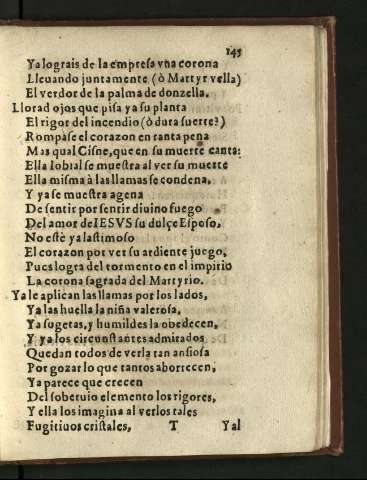 145
Ya lograis de la empresa vna corona
Lleuando juntamente (ò Martyr vella)
El verdor de la palma de donzella.
Llorad ojos que pisa ya su planta
El rigor del incendio (ò dura suerte?)
Rompase el corazon en tanta pena
Mas qual Cisne, que en su muerte canta:
Ella lobial se muestra al ver su muerte
Ella misma à las llamas se condena,
Y ya se muestra agena
De sentir por sentir diuino fuego
Del amor de IESVS su dulçe Esposo,
No estè ya lastimoso
El corazon por ver su ardiente juego,
Pues logra del tormento en el impirio
La corona sagrada del Martyrio.
Ya le aplican las llamas por los lados,
Ya las huella la niña valerosa,
Ya sugetas, y humildes la obedecen,
Y ya los circunstantes admirados
Quedan todos de verla tan ansiosa
Por gozar lo que tantos aborrecen,
Ya parece que crecen
Del soberuio elemento los rigores,
Y ella los imagina al verlos tales
Fugitiuos cristales, T Yal